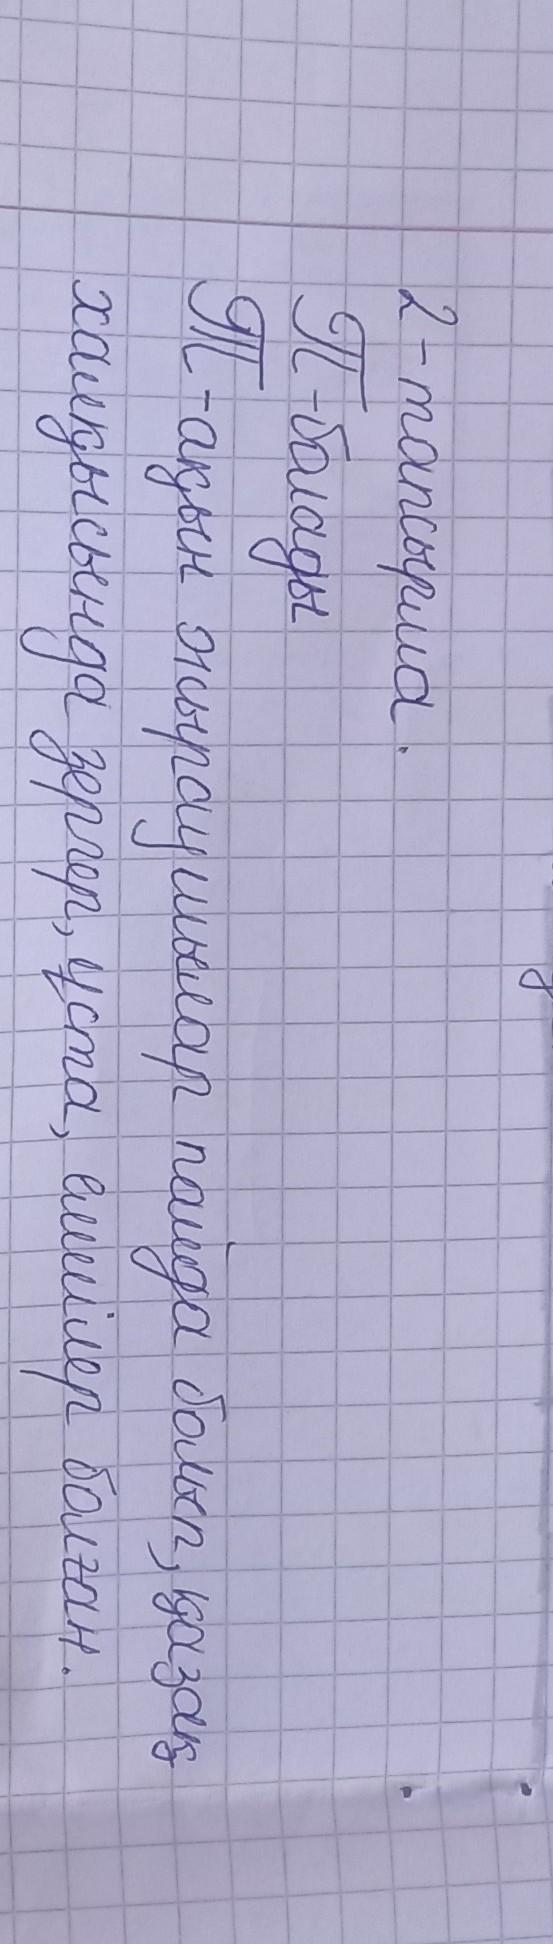 2-тапсырма.
П-болады
Т-ақын жыраушылар пайда болып, қазақ
халқысында зергер, ұста, емшілер болған.